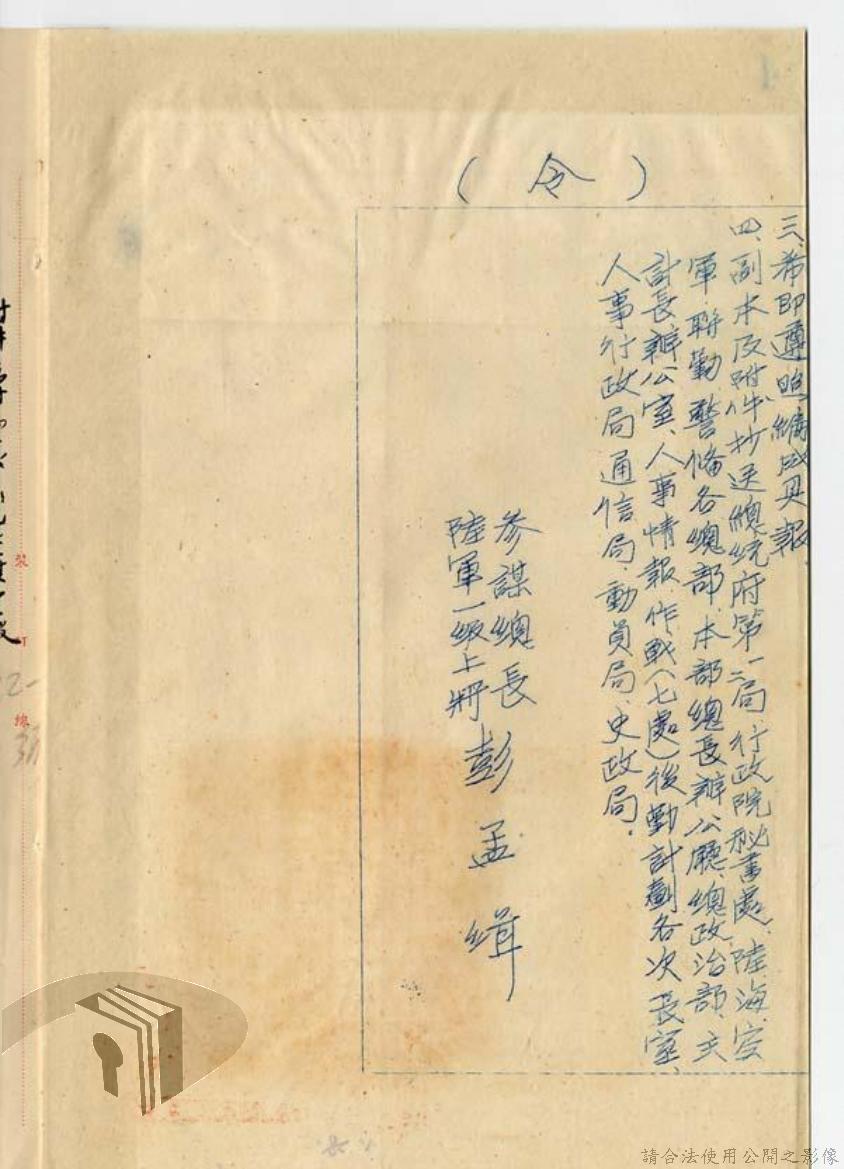 （令）
三、希即遵照編成具報。
四、副本及附件抄送總統府第一二局、行政院秘書處、陸海、空
軍、聯勤、警備各總部、本部總長辦公廳、總政治部、主
計長辦公室、人事情報、作戰（七處）後勤計劃各次長室、
人事行政局通信局、動員局、史政局。
參謀總長
陸軍一級上將 彭孟緝
裝
訂
線
請合法使用公開之影像